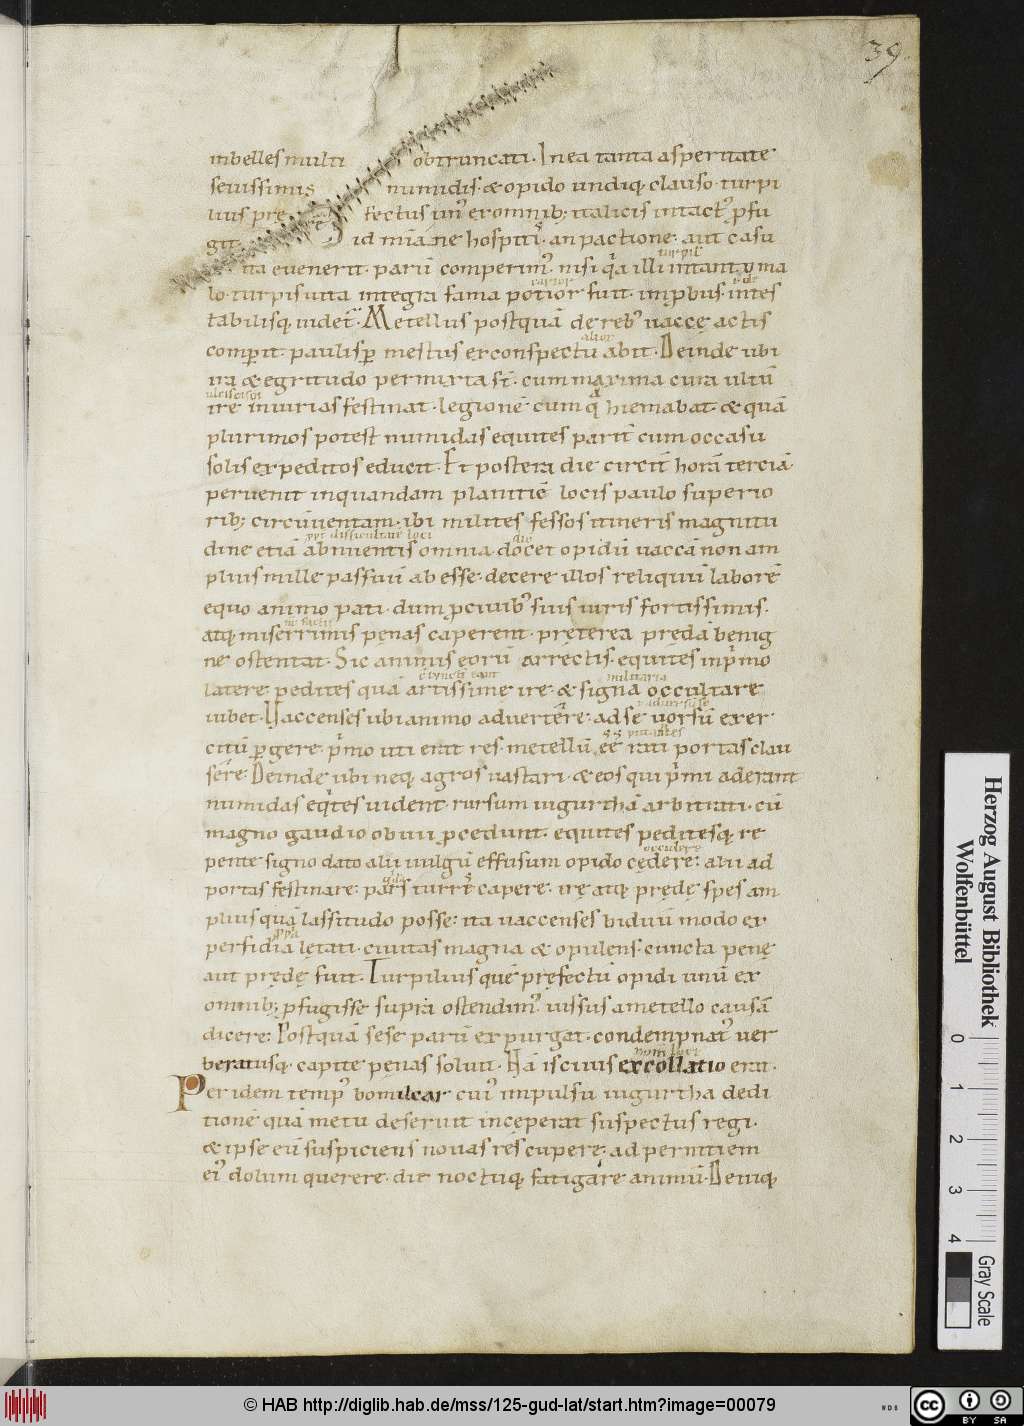 39
inbelles multi obtruncati. In ea tanta asperitate
seuissimis numidis. & opido undiq; clauso. turpi
lius pre fectus un⁹ ex omnib; italicis intact⁹ ꝓfu
git. Id mīane hospitis. an pactione. aut casu
turpil'
ita euenerit. parū comperim⁹. nisi qͣ illi in tanto ma
carior
lo. turpis uita integra fama potior fuit. imꝓbus. intes
tabilisq; uidet̄. Metellus postquā de reb⁹ uacce actis
comꝑit. paulisꝑ mestus ex conspectu abiit. Deinde ubi
ira & egritudo permixta sꝉ. cum maxima cura ultū
ulciscendi
ire iniurias festinat. legionē cum qͣ hiemabat. & quā
plurimos potest numidas equites parit̄ cum occasu
solis expeditos educit. Et postera die circit̄ horā terciā.
peruenit inquandam planitiē locis paulo superio
rib; circūuentam. ibi milites fessos itineris magnitu
ꝓpt difficultatē loci
dine etiā abnuentis omnia. docet opidū uaccā non am
plius mille passuū ab esse. decere illos reliquū laborē
equo animo pati. dum ꝓ ciuib⁹ suis uiris fortissimis.
atq; miserrimis penas caperent. preterea predā benig
ne ostentat. Sic animis eorū arrectis. equites inpͥmo
militaria
latere pedites quā artissime ire & signa occultare
iubet. Uaccenses ubi animo aduertēre. ad se uorsū exer
citū ꝑgere. pͥmo uti erat res. metellū eē rati portas clau
sēre. Deinde ubi neq; agros uastari. & eos qui pͥmi aderant
numidas eqͥtes uident. rursum iugurthā arbitrati. cū
magno gaudio obuii ꝓcedunt. equites peditesq; re
occidere
pente signo dato alii uulgū effusum opido cedere: alii ad
portas festinare: pars turres capere. ire atq; prede spes am
plius quā lassitudo posse: ita uaccenses biduū modo ex
perfidia letati. ciuitas magna & opulens. cuncta pene
aut prede fuit. Turpilius quē prefectū opidi unū ex
omnib; ꝓfugisse supra ostendim⁹. iussus a metello causā
dicere: Postquā sese parū expurgat. condempnat⁹ uer
beratusq; capite penas soluit. Nā is ciuis ex collatio erat.
Per idem temp⁹ bomilcar cui⁹ impulsu iugurtha dedi
tionē quā metu deseruit inceperat suspectus regi.
& ipse eū suspiciens nouas res cupere. ad pernitiem
ei⁹ dolum querere. die noctuq; fatigare animū. Deniq;
Herzog August Bibliothek
Wolfenbüttel
0 1 2 3 4
Gray Scale
© HAB http://diglib.hab.de/mss/125-gud-lat/start.htm?image=00079
cc BY SA